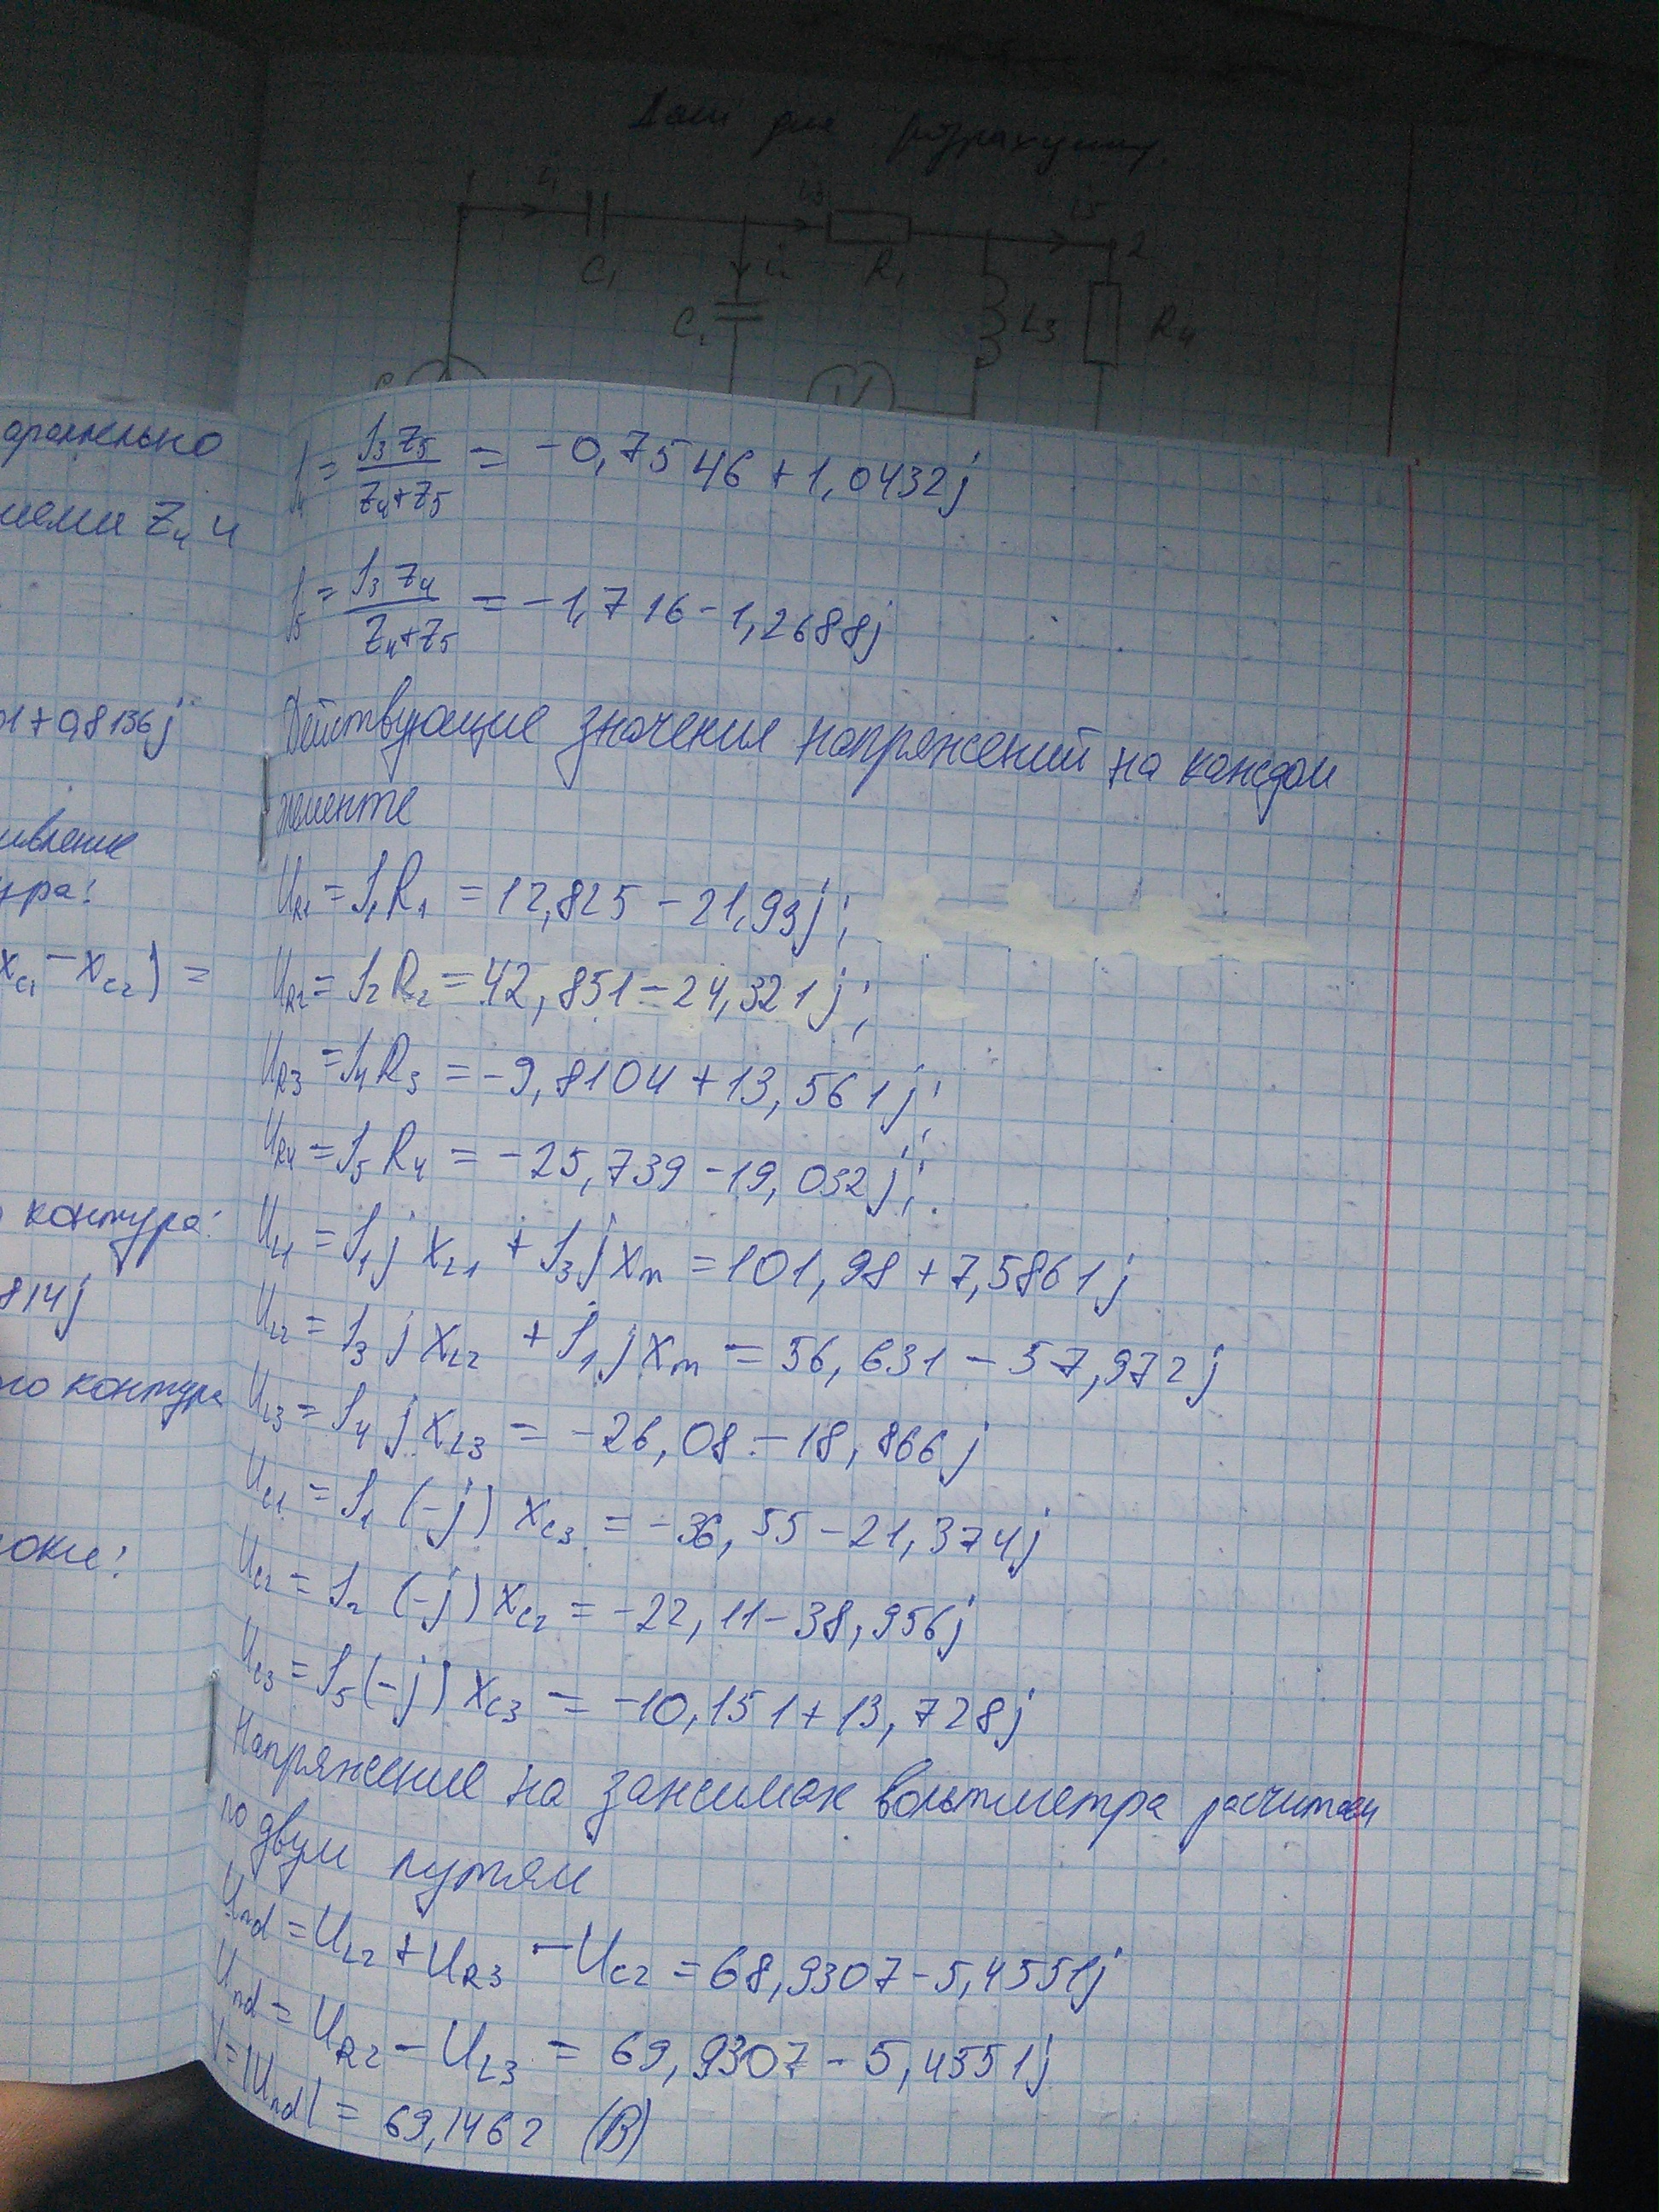 Дані для розрахунку.
C1
R1
i5
2
C2
L3
R4
V
араллельно
иеми Z4 и
01+0,8136j
ивление
ура:
xC1 - xC2) =
контура:
814j
го контура
оки:
I4 = I3Z5 / Z4+Z5 = -0,7546+1,0432j
I5 = I3Z4 / Z4+Z5 = -1,716-1,2688j
Действующие значения напряжений на каждом
элементе
UR1 = I1R1 = 12,825 - 21,93j;
UR2 = I2R2 = 42,851-24,321j;
UR3 = I4R3 = -9,8104+13,561j;
UR4 = I5R4 = -25,739-19,032j;
UL1 = I1jxL1 + I3jxm = 101,98+7,5861j
UL2 = I3jxL2 + I1jxm = 56,631-57,972j
UL3 = I4jxL3 = -26,08-18,866j
UC1 = I1(-j)xC3 = -36,55-21,374j
UC2 = I2(-j)xC2 = -22,11-38,956j
UC3 = I5(-j)xC3 = -10,151+13,728j
Напряжение на зажимах вольтметра расчитаем
по двум путям
Und = UL2+UR3-UC2 = 68,9307-5,4551j
Und = UR2-UL3 = 69,9307-5,4551j
V=|Und| = 69,1462 (В)